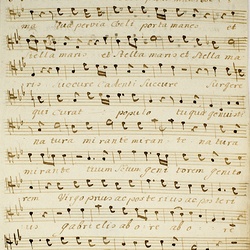 ma quae pervia coeli porta manes et
stella maris et Stella maris et Stella ma
ris Succure cadenti Succure Surgere
qui curat populo tu quae genuisti
natura mirante miran te natura
mirante tuum Sanctum genitorem genito
rem Virgo prius ac posterius ac posteri
us gabrielis ab ore ab o re